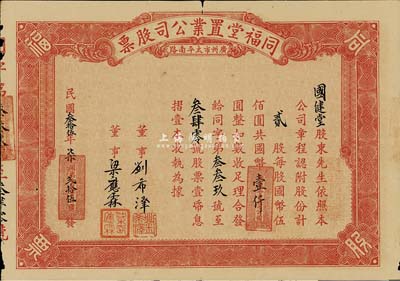 同福堂置業公司股票
廣州市太平南路
國健堂股東先生依照本
公司章程認附股份計
貳股每股國幣伍
佰圓共國幣壹仟
圓整如數收足理合發
給同字第叁叁玖號至
叁肆零號股票壹張息
摺壹本收執為據
董事 劉希澤
董事 梁應霖
民國叁拾伍年 月貳拾伍日發